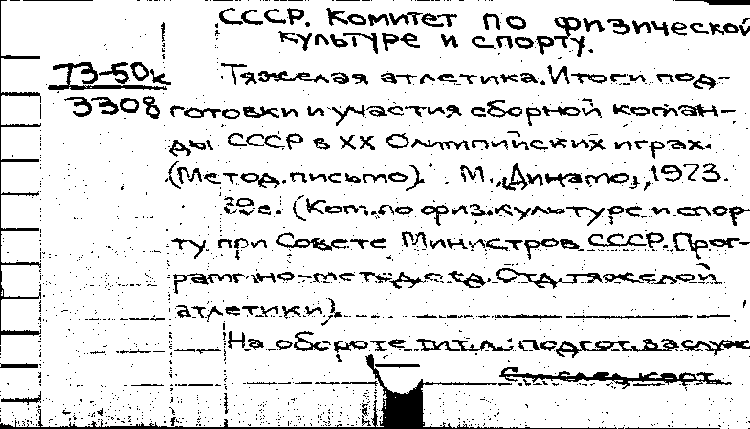 СССР. Комитет по физической
культуре и спорту.
73-50к
3308
Тяжелая атлетика. Итоги под-
готовки и участия сборной коман-
ды СССР в XX Олимпийских играх.
(Метод. письмо). М., "Динамо", 1973.
20с. (Ком. по физ. культуре и спор-
ту при Совете Министров СССР. Прог-
раммно-метод. отд. Отд. тяжелой
атлетики).
На обороте тит. л.: подгот. заслуж.
См. след. карт.